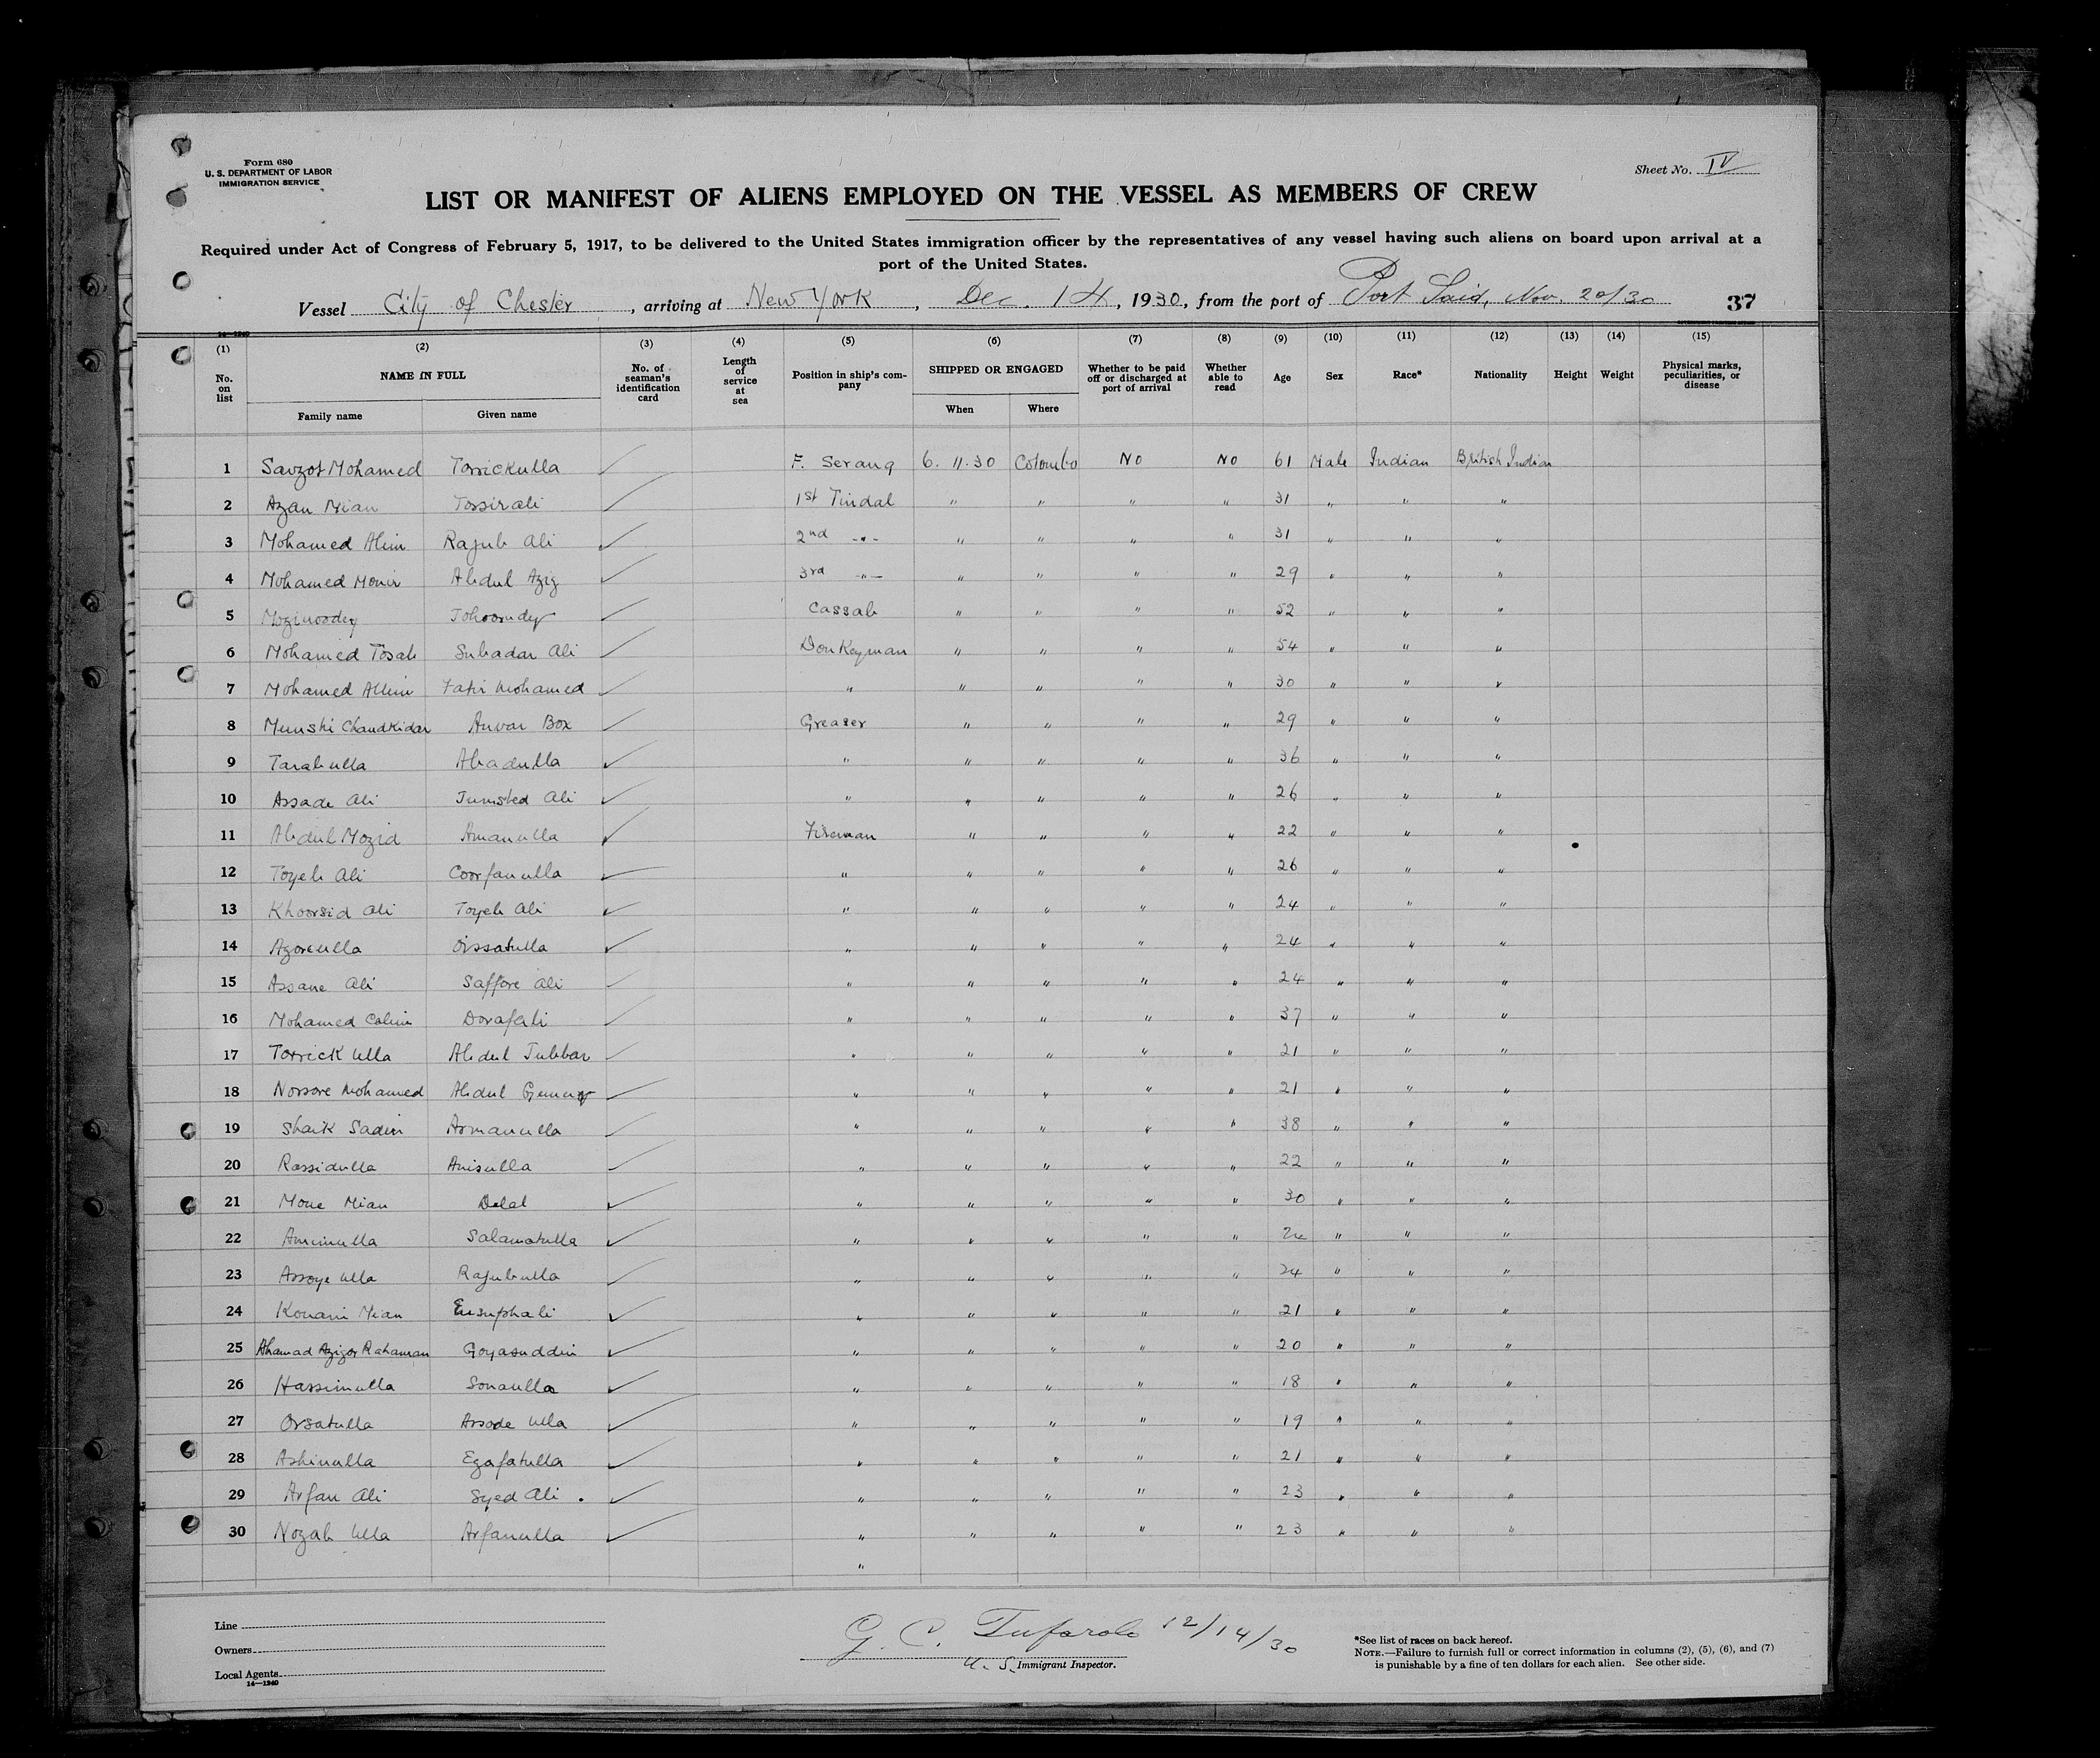 Form 680
U. S. DEPARTMENT OF LABOR
IMMIGRATION SERVICE
Sheet No. IV
LIST OR MANIFEST OF ALIENS EMPLOYED ON THE VESSEL AS MEMBERS OF CREW
Required under Act of Congress of February 5, 1917, to be delivered to the United States immigration officer by the representatives of any vessel having such aliens on board upon arrival at a
port of the United States.
Vessel City of Chester, arriving at New York, Dec. 14, 1930, from the port of Port Said, Nov. 20/30 37
14—1240
(1) (2) (3) (4) (5) (6) (7) (8) (9) (10) (11) (12) (13) (14) (15)
No. on list NAME IN FULL No. of seaman's identification card Length of service at sea Position in ship's company SHIPPED OR ENGAGED Whether to be paid off or discharged at port of arrival Whether able to read Age Sex Race* Nationality Height Weight Physical marks, peculiarities, or disease
Family name Given name When Where
1 Mohamed Torrickulla F. Serang 6. 11. 30 Colombo No No 61 Male Indian British Indian
2 Azan Mian Tossirali 1st Tindal " " " " 31 " " "
3 Mohamed Alim Rajub Ali 2nd -"- " " " " 31 " " "
4 Mohamed Monir Abdul Aziz 3rd -"- " " " " 29 " " "
5 Cassab " " " " 52 " " "
6 Mohamed Tosab Subadar Ali Donkeyman " " " " 54 " " "
7 Mohamed Allim Fafir Mohamed " " " " " 30 " " "
8 Munshi Chaudkidar Anvar Box Greaser " " " " 29 " " "
9 Tarabulla Abadulla " " " " " 36 " " "
10 Assade Ali Jumshed Ali " " " " " 26 " " "
11 Abdul Mozid Amanulla Fireman " " " " 22 " " "
12 Toyeb Ali Coorfanulla " " " " " 26 " " "
13 Khoorsid Ali Toyeb Ali " " " " " 24 " " "
14 Azoreulla Oissatulla " " " " " 24 " " "
15 Assane Ali Saffore Ali " " " " " 24 " " "
16 Mohamed Calim Dorafali " " " " " 37 " " "
17 Torrick Ulla Abdul Jubbar " " " " " 21 " " "
18 Norsore Mohamed Abdul " " " " " 21 " " "
19 Shaik Sadin Armanulla " " " " " 38 " " "
20 Rassidulla Anisulla " " " " " 22 " " "
21 Mone Mian Dalal " " " " " 30 " " "
22 Aminulla Salamatulla " " " " " " " "
23 Arroye Ulla Rajubulla " " " " " 24 " " "
24 Konani Mian Eusuphali " " " " " 21 " " "
25 Ahamad Azizor Rahaman Goyasuddin " " " " " 20 " " "
26 Hassimulla Sonaulla " " " " " 18 " " "
27 Orsatulla Arsode Ulla " " " " " 19 " " "
28 Ashinulla Ezafatulla " " " " " 21 " " "
29 Arfan Ali Syed Ali . " " " " " 23 " " "
30 Nozab Ulla Arfanulla " " " " " 23 " " "
"
Line
Owners
Local Agents
14—1240
G. C. Tufarolo 12/14/30
U. S. Immigrant Inspector.
*See list of races on back hereof.
NOTE.—Failure to furnish full or correct information in columns (2), (5), (6), and (7)
is punishable by a fine of ten dollars for each alien. See other side.